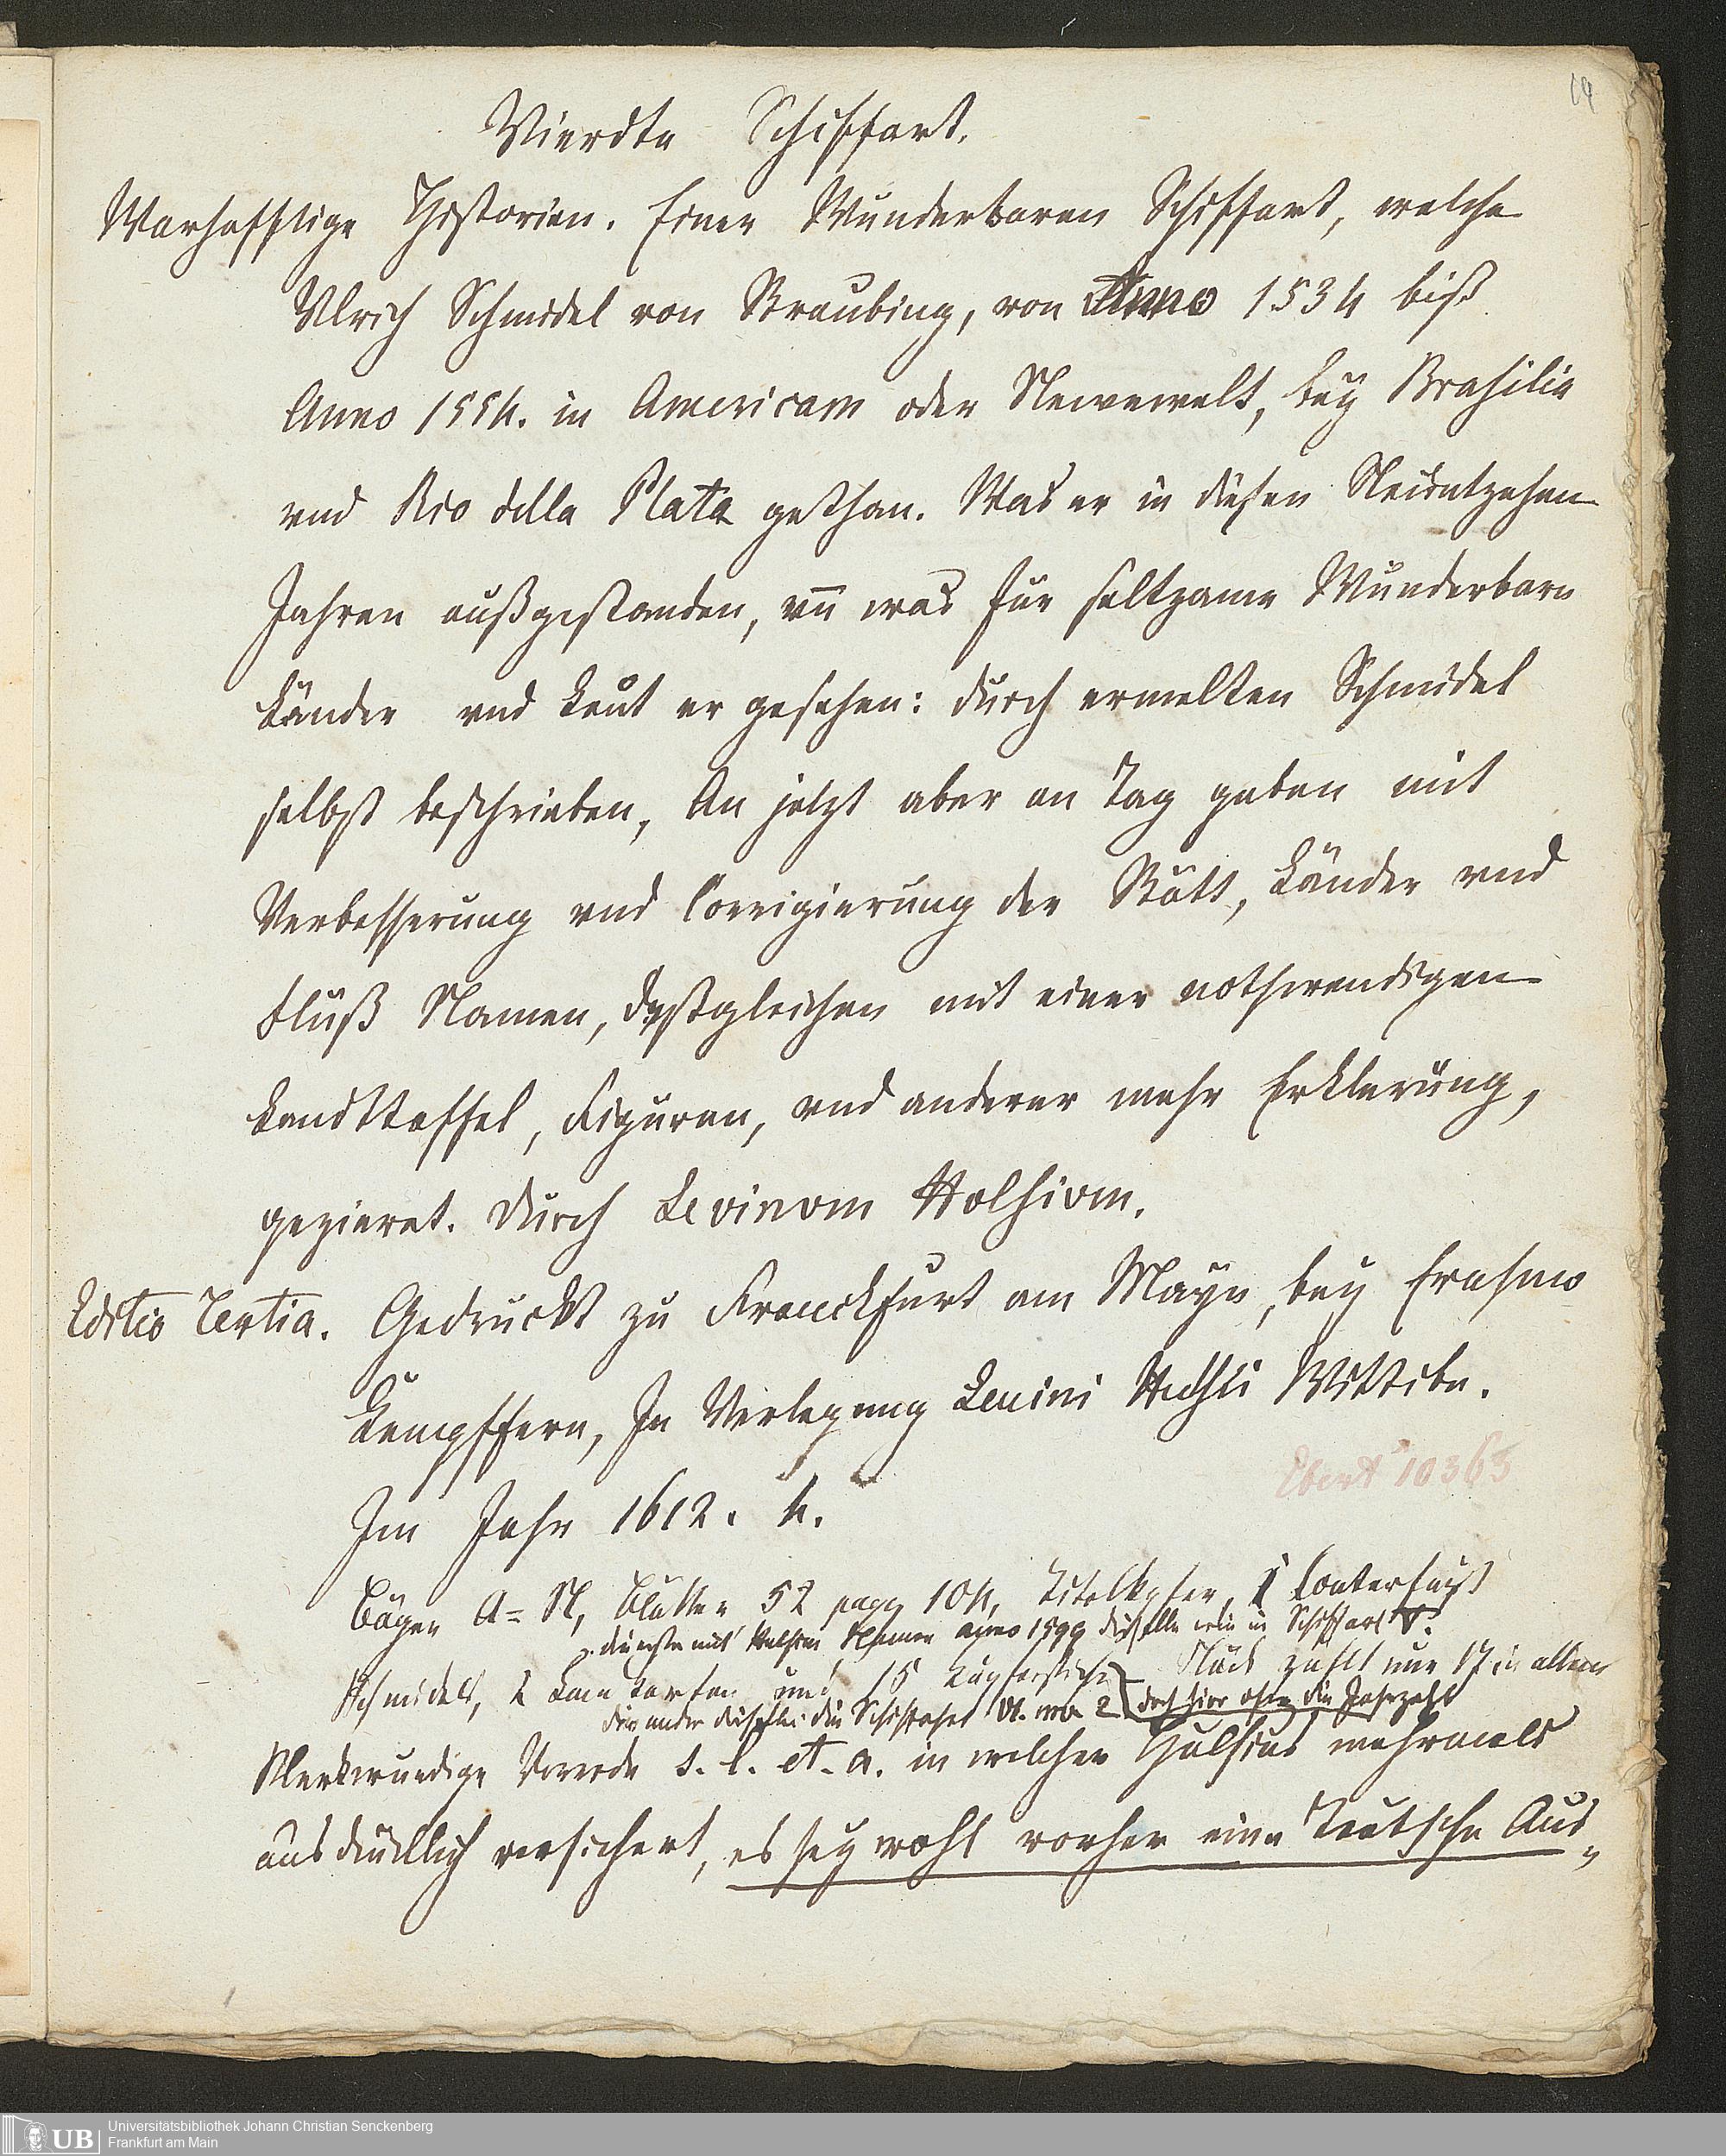 19
Vierdte Schiffart.
Warhafftige Historien. Einer Wunderbaren Schiffart, welche
Ulrich Schmidel von Straubing, von Anno 1534 biß
Anno 1554. in Americam oder Newewelt, bey Brasilia
vnd Rio della Plata gethan. Was er in diesen Neuntzehen
Jahren außgestanden, vn̄ was für seltzame Wunderbare
Länder vnd Leut er gesehen: durch ermelten Schmidel
selbst beschrieben, An jetzt aber an Tag geben mit
Verbesserung vnd Corrigierung der Stätt, Länder vnd
Fluß Namen, deßgleichen mit einer nothwendigen
Landttaffel, Figuren, vnd anderer mehr Erklerung,
gezieret. Durch Levinvm Hvlsivm.
Editio Tertia. Gedruckt zu Franckfurt am Mayn, bey Erasmo
Kempffern, In Verlegung Leuini Hulsii Wittibe.
Im Jahr 1612. 4.
Ebert 10363
Bögen A-N, Blätter 52 pagg 104, Titelkpfer, 1 Conterfeyt
die erste mit Hulsius Namen anno 1599 dieselbe wie in Schiffart V.
Schmidels, 2 Landkarten und 15 Kupferstiche Stück zählt nur 17 in allem
die andere dieselbe die Schiffahrt VI. nro 2 doch hier ohne die Jahrzahl
Merkwürdige Vorrede s. l. et. a. in welcher Hulsius mehrmals
ausdrücklich versichert, es sey wohl vorher eine Teutsche Aus-
UB
Universitätsbibliothek Johann Christian Senckenberg
Frankfurt am Main